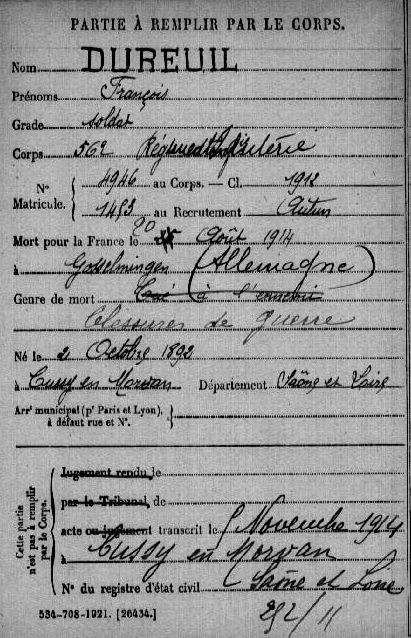 PARTIE À REMPLIR PAR LE CORPS.
Nom DUREUIL
Prénoms François
Grade soldat
Corps 56e Régiment d'Infanterie
N° Matricule. { 4946 au Corps. — Cl. 1912
1453 au Recrutement Autun
Mort pour la France le 20 Août 1914
à Gosselmingen (Allemagne)
Genre de mort Tué à l'ennemi
blessures de guerre
Né le 2 Octobre 1892
à Cussy en Morvan Département Saône et Loire
Arrt municipal (pr Paris et Lyon), à défaut rue et N°. }
Cette partie n'est pas à remplir par le Corps.
Jugement rendu le
par le Tribunal de
acte ou jugement transcrit le Novembre 1914
à Cussy en Morvan
N° du registre d'état civil Saône et Loire
534-708-1921. [26434.]